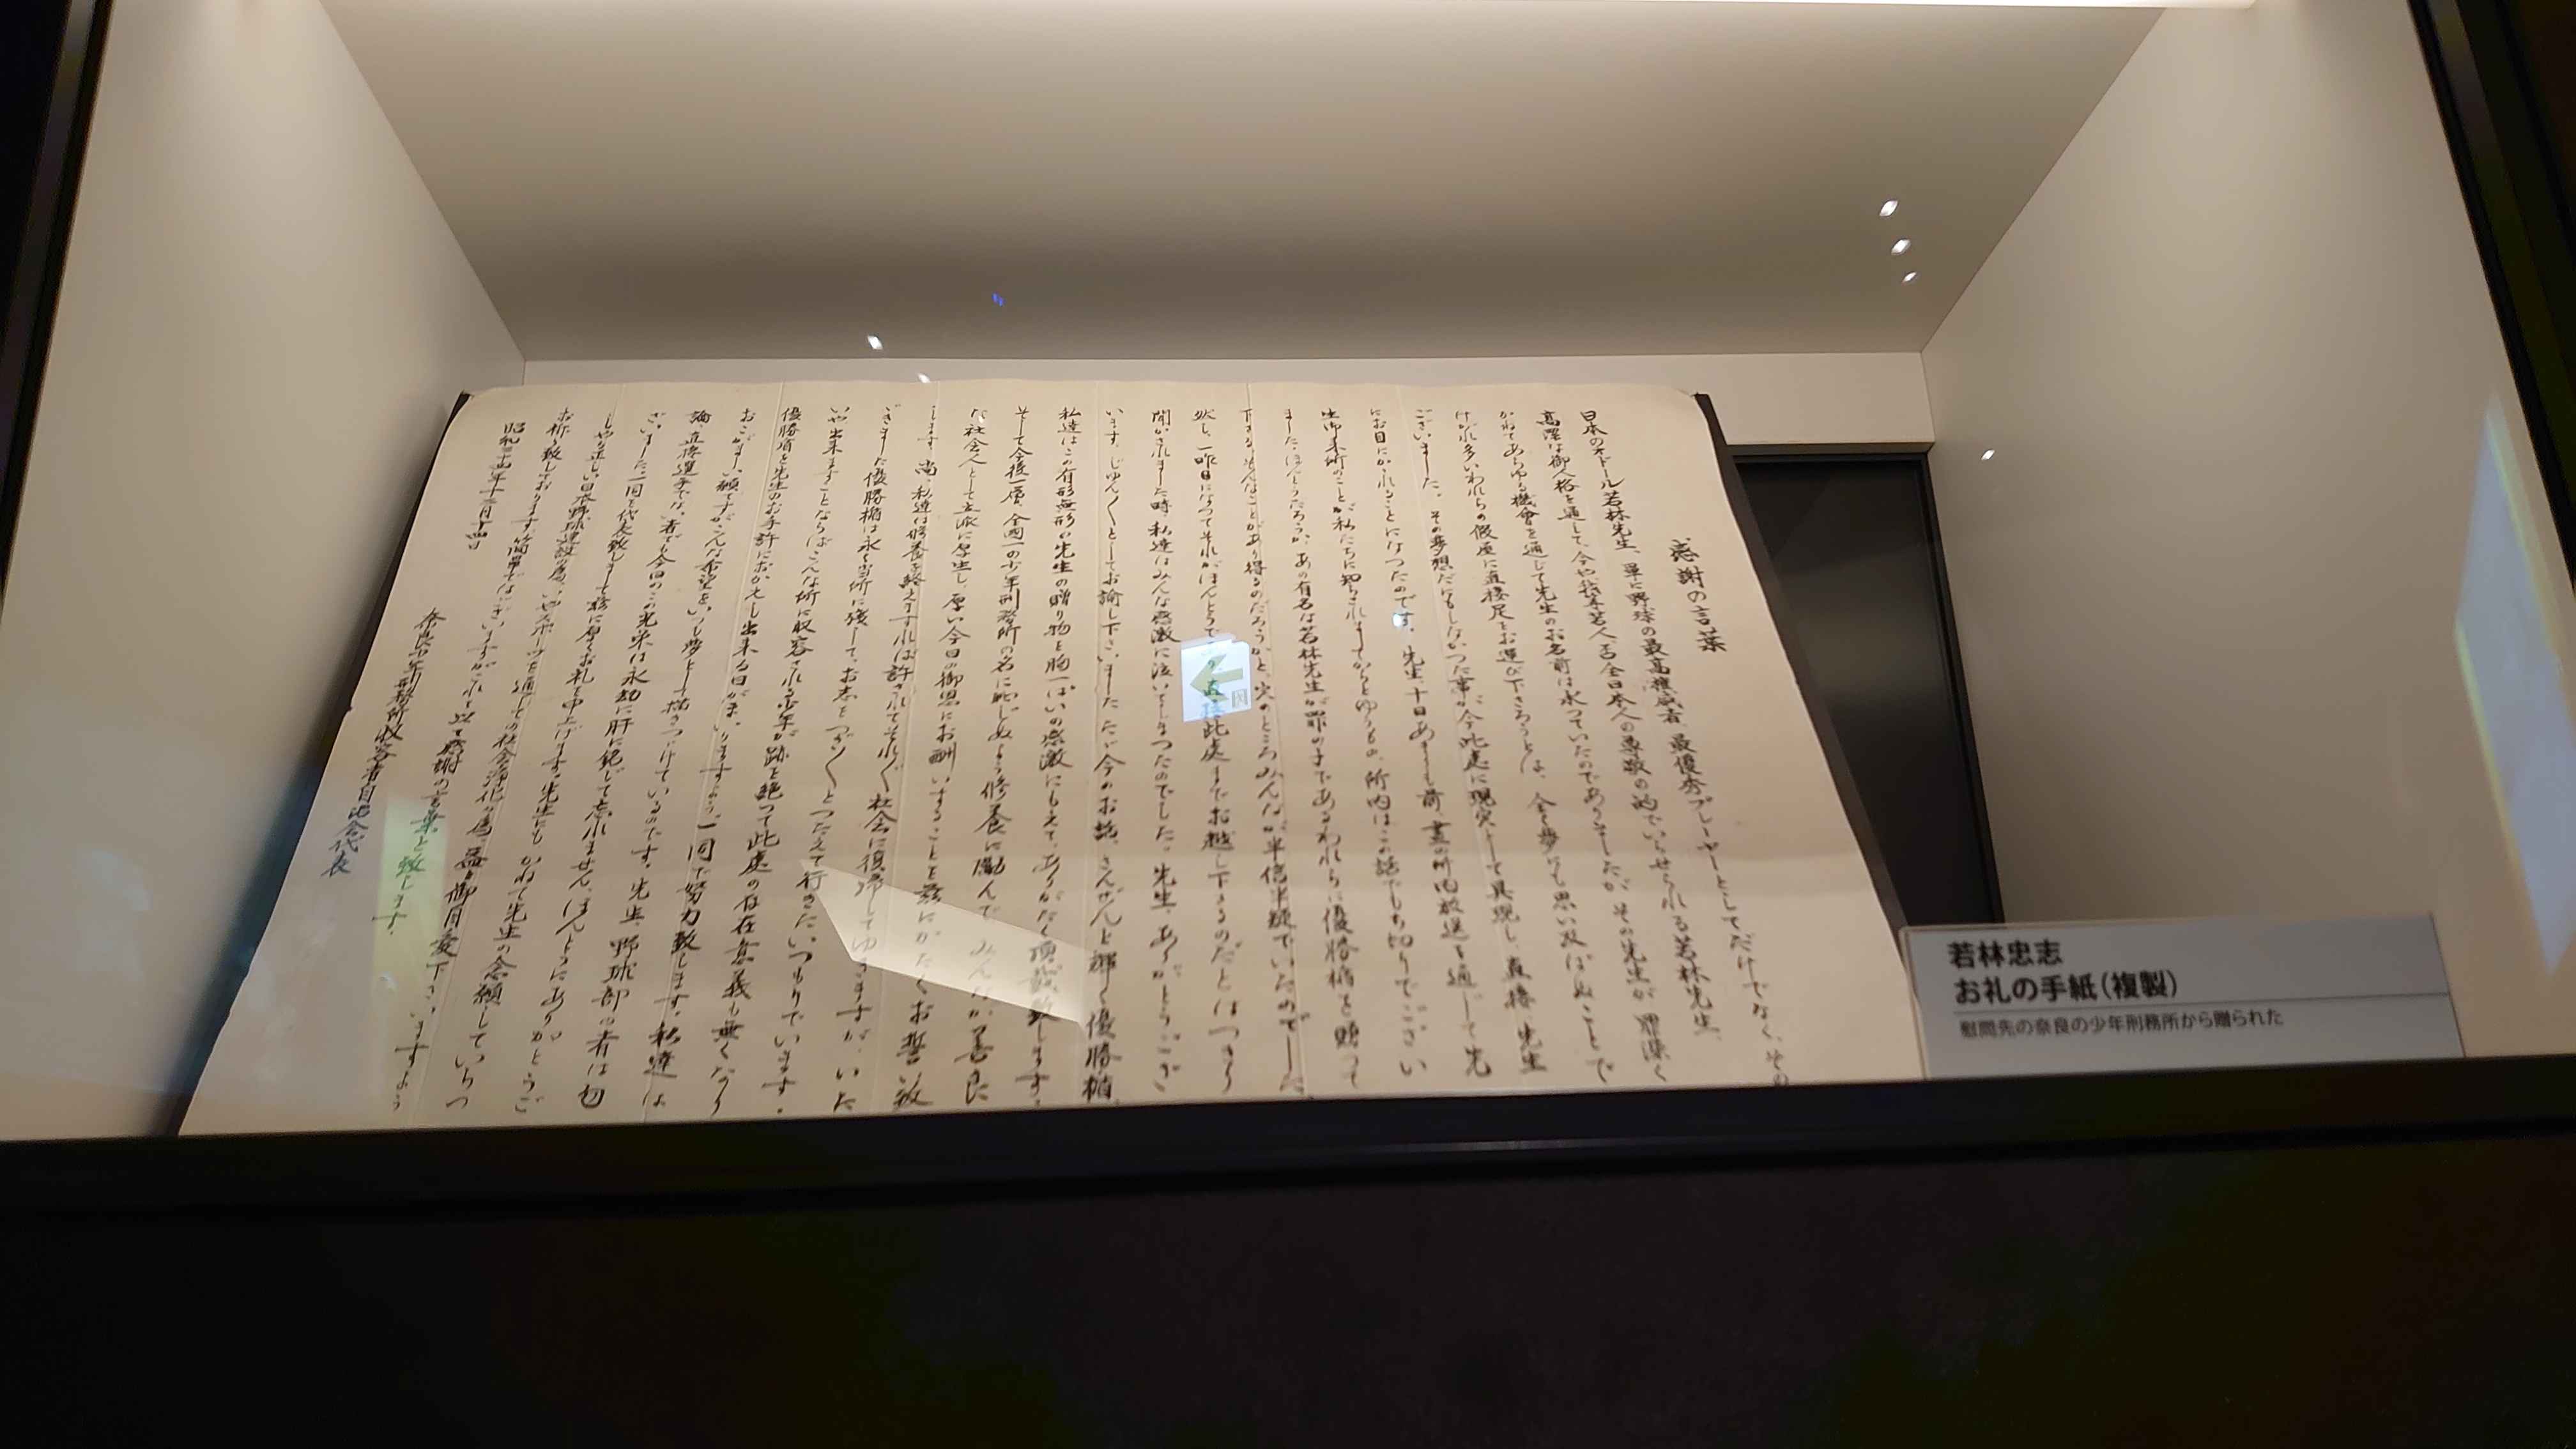 感謝の言葉
日本のアドール若林先生、単に野球の最高権威者、最優秀プレーヤーとしてだけでなく、その
高潔な御人格を通して、今や我等若人、否全日本人の尊敬の的でいらせられる若林先生、
かねてあらゆる機會を通じて先生のお名前は承っていたのでありましたが その先生が罪深く
けがれ多いわれらの假屋に直接足をお運び下さろうとは、全く夢にも思い及ばぬことで
ございました。その夢想だにもしなかつた事が今此處に現実として具現し、直接 先生
にお目にかゝれることになつたのです。先生、十日あまり前、晝の所内放送を通じて先
生御来所のことが私たちに知らされましてからとゆうもの、所内はこの話でもち切りでござい
ました。ほんとうだろうか、あの有名な若林先生が罪の子であるわれらに優勝楯を贈って
下さる。そんなことがあり得るのだろうかと、実のところみんなが半信半疑でいたのでした。
然し、一昨日になつてそれがほんとうで 此處までお越し下さるのだとはつきり
聞かされました時 私達はみんな感激に泣いてしまつたのでした。先生、ありがとうござ
います。じゅん〱としてお諭し下さいました たゞ今のお話、さんぜんと輝く優勝楯、
私達はこの有形無形の先生の贈り物を胸一ぱいの感激にもえて、ありがたく頂戴致します。
そして今後一層、全国一の少年刑務所の名に恥じぬよう修養に励んで、みんなが善良
な社会人として立派に厚生し、厚い今日の御恩にお酬いすることを茲にかたくお誓い致
します。尚、私達は修養を終えますれば許されてそれ〲社会に復帰してゆきますが、いた
ゞきました優勝楯は永く当所に残して、お志をつぎ〱とつたえて行きたいつもりでいます。
いや出来ますことならばこんな所に収容される少年が跡を絶つて此處の存在意義も無くなり
優勝楯を先生のお手許におかえし出来る日がまいりますよう、一同で努力致します。私達は
おこがましい願ですがこんな希望を、いつも夢として描きつづけているのです。先生、野球部の者は勿
論 直接選手でない者でも今日のこの光栄は永劫に肝に銘じて忘れません。ほんとうにありがとうご
ざいました。一同を代表致しまして茲に厚くお礼を申上げます。先生にもかねて先生の念願していらつ
しやる正しい日本野球建設の為、いやスポーツを通しての社会浄化の為、益々御自愛下さいますよう
お祈り致しております 簡単ではございますがこれを以て感謝の言葉と致します。
昭和二十四年十二月十四日
奈良少年刑務所収容者自治会代表
若林忠志
お礼の手紙(複製)
慰問先の奈良の少年刑務所から贈られた